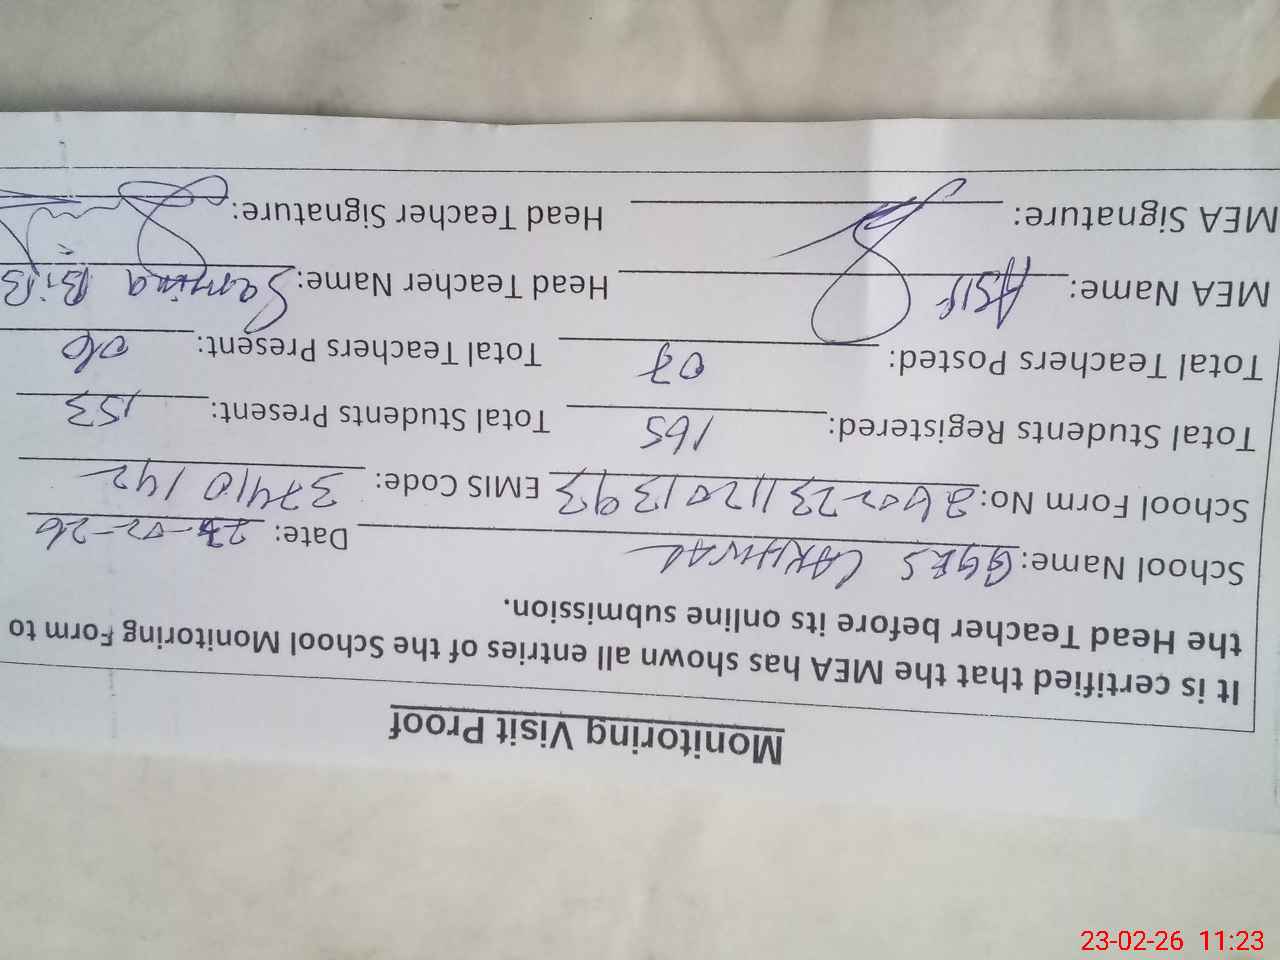 Monitoring Visit Proof
It is certified that the MEA has shown all entries of the School Monitoring Form to
the Head Teacher before its online submission.
School Name: GGES LAKHWAL Date: 23-02-26
School Form No: 26022311201393 EMIS Code: 37410142
Total Students Registered: 165 Total Students Present: 153
Total Teachers Posted: 07 Total Teachers Present: 06
MEA Name: ASIF Head Teacher Name: Samina BiBi
MEA Signature: Head Teacher Signature:
23-02-26 11:23